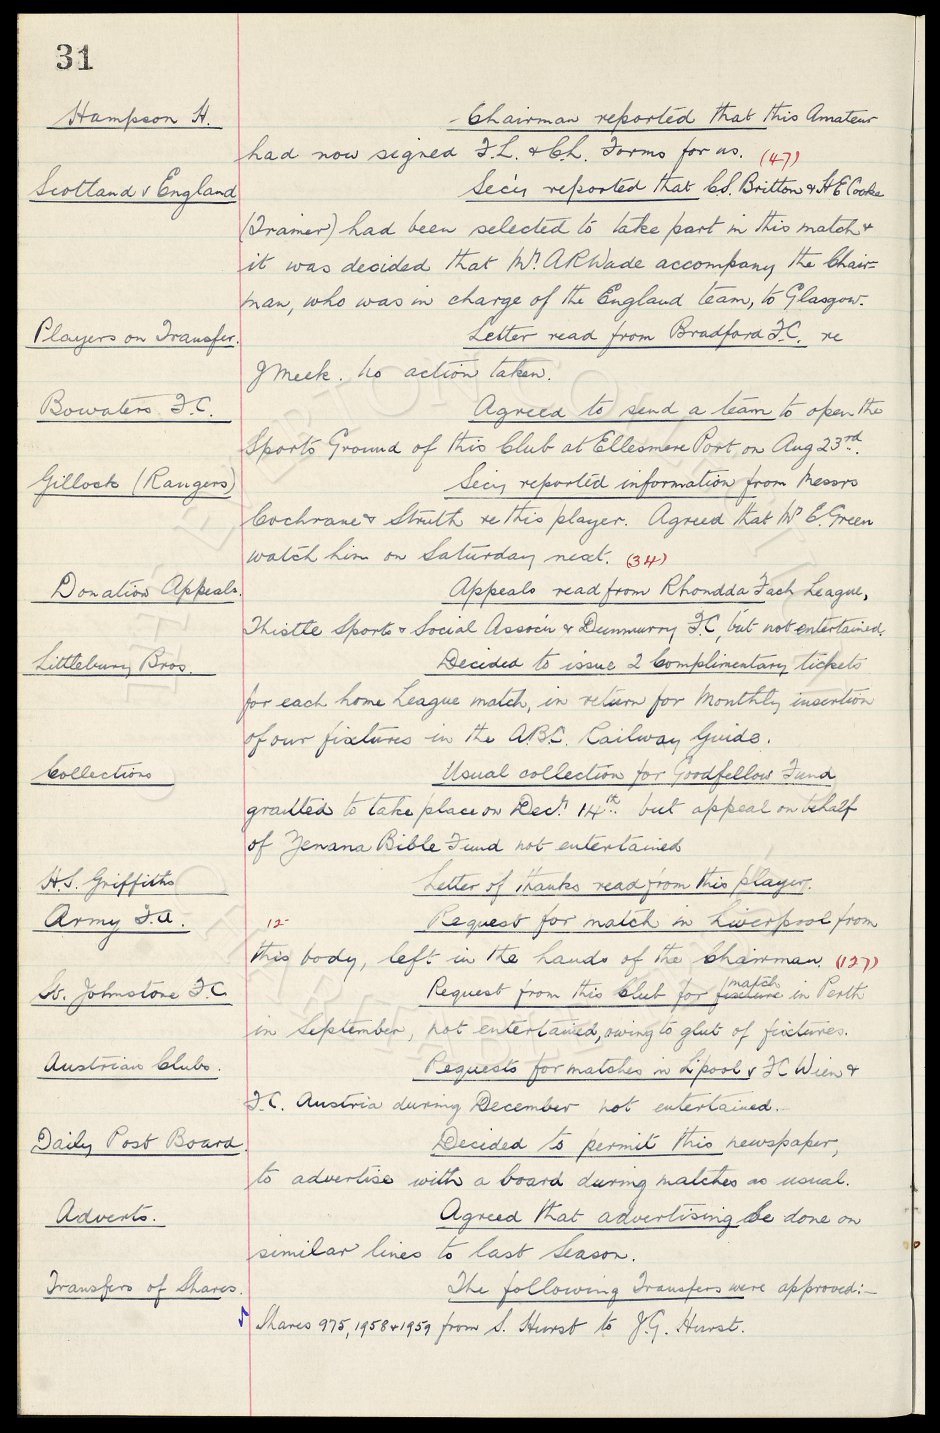 31
Hampson H. Chairman reported that this Amateur
had now signed F.L. & C.L. Forms for us. (47)
Scotland v England Sec'y reported that C.S. Britton & H E Cooke
(Trainer) had been selected to take part in this match &
it was decided that Mr. A R Wade accompany the Chair=
man, who was in charge of the England team, to Glasgow.
Players on Transfer. Letter read from Bradford F.C. re
J Meek. No action taken.
Bowaters F.C. Agreed to send a team to open the
Sports Ground of this Club at Ellesmere Port, on Aug 23rd.
Gillock (Rangers) Secy reported information from Messrs
Cochrane & Struth re this player. Agreed that Mr E. Green
watch him on Saturday next. (34)
Donation Appeals. Appeals read from Rhondda Fach League,
Thistle Sports & Social Associn & Dunmurry F.C, but not entertained.
Littlebury Bros. Decided to issue 2 Complimentary tickets
for each home League match, in return for Monthly insertion
of our fixtures in the A.B.C. Railway Guide.
Collections Usual collection for Goodfellow Fund
granted to take place on Decr. 14th. but appeal on behalf
of Zenana Bible Fund not entertained
H.S. Griffiths Letter of thanks read from this player.
Army F.A. 12 Request for match in Liverpool from
this body, left in the hands of the Chairman. (127)
St. Johnstone F.C. Request from this Club for fixture match in Perth
in September, not entertained, owing to glut of fixtures.
Austrian Clubs. Requests for matches in L'pool v F C Wien &
F.C. Austria during December not entertained.
Daily Post Board. Decided to permit this newspaper,
to advertise with a board during matches as usual.
Adverts. Agreed that advertising be done on
similar lines to last Season.
Transfers of Shares. The following Transfers were approved:-
Shares 975, 1958 & 1959 from S. Hurst to J.G. Hurst.